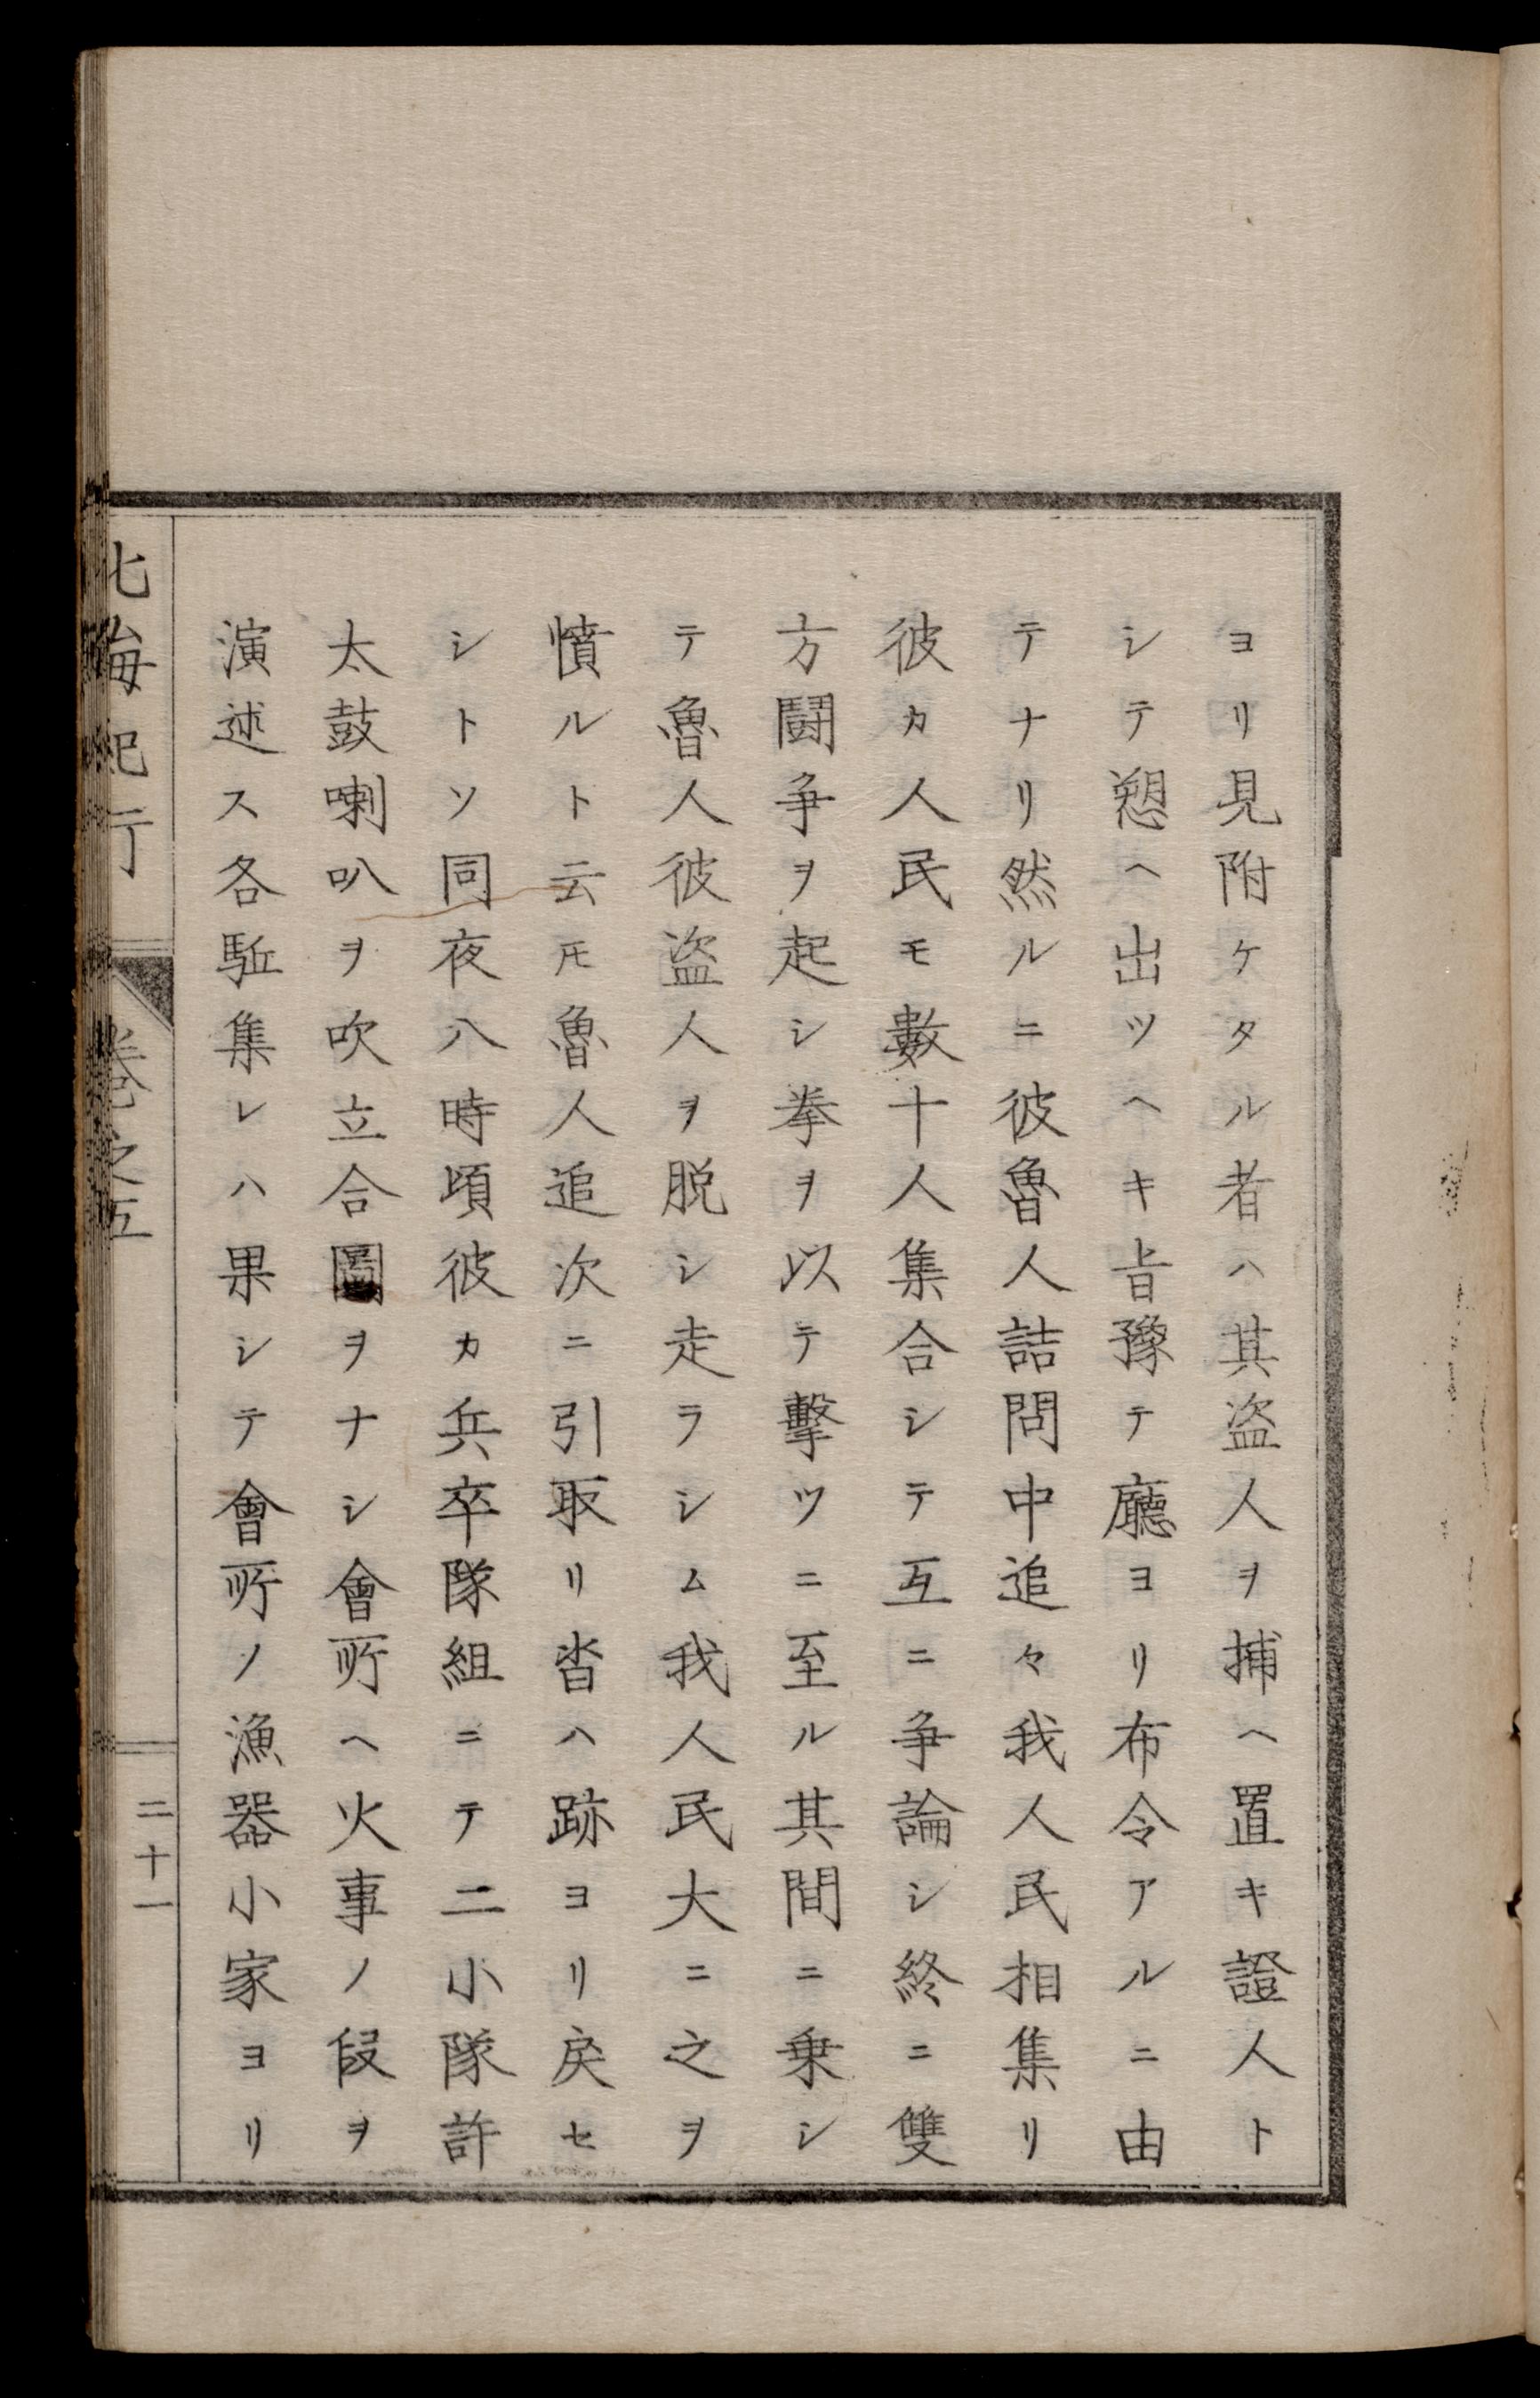 ヨリ見附ケタル者ハ其盗人ヲ捕ヘ置キ證人ト
シテ愬ヘ出ツヘキ旨豫テ廳ヨリ布令アルニ由
テナリ然ルニ彼魯人詰問中追々我人民相集リ
彼カ人民モ數十人集合シテ互ニ爭論シ終ニ雙
方鬪爭ヲ起シ拳ヲ以テ擊ツニ至ル其間ニ乗シ
テ魯人彼盗人ヲ脱シ走ラシム我人民大ニ之ヲ
憤ルト云𪜈魯人追次ニ引取リ沓ハ跡ヨリ戻セ
シトソ同夜八時頃彼カ兵卒隊組ニテ二小隊許
太鼓喇叭ヲ吹立合圖ヲナシ會所ヘ火事ノ段ヲ
演述ス各駈集レハ果シテ會所ノ漁器小家ヨリ
北海紀行
卷之五
二十一